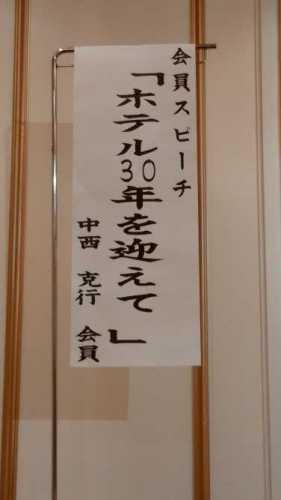 会員スピーチ
「ホテル30年を迎えて」
中西 克行 会員